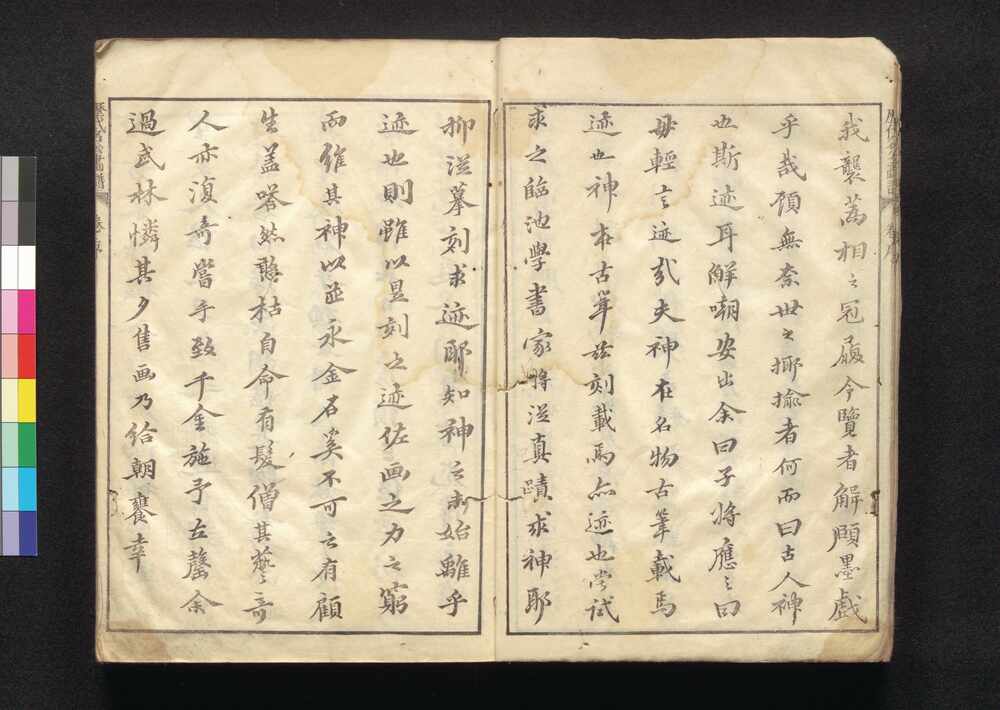 我襲萬相之冠履令覽者解頤墨戲
乎哉顧無奈世之揶揄者何而曰古人神
也斯迹耳解嘲安出余曰子將應之曰
毋輕言迹哉夫神在名物古筆載焉
迹也神在古筆茲刻載焉亦迹也嘗試
求之臨池學書家將從真蹟求神耶
抑從摹刻求迹耶知神之未始離乎
迹也則雖以是刻之迹佐画之力之窮
而維其神以並永金石奚不可云有顧
生盖嗒然憨枯自命有髮僧其藝之奇
人亦復奇嘗手致千金施予立罄余
過武林憐其夕售画乃給朝饔幸